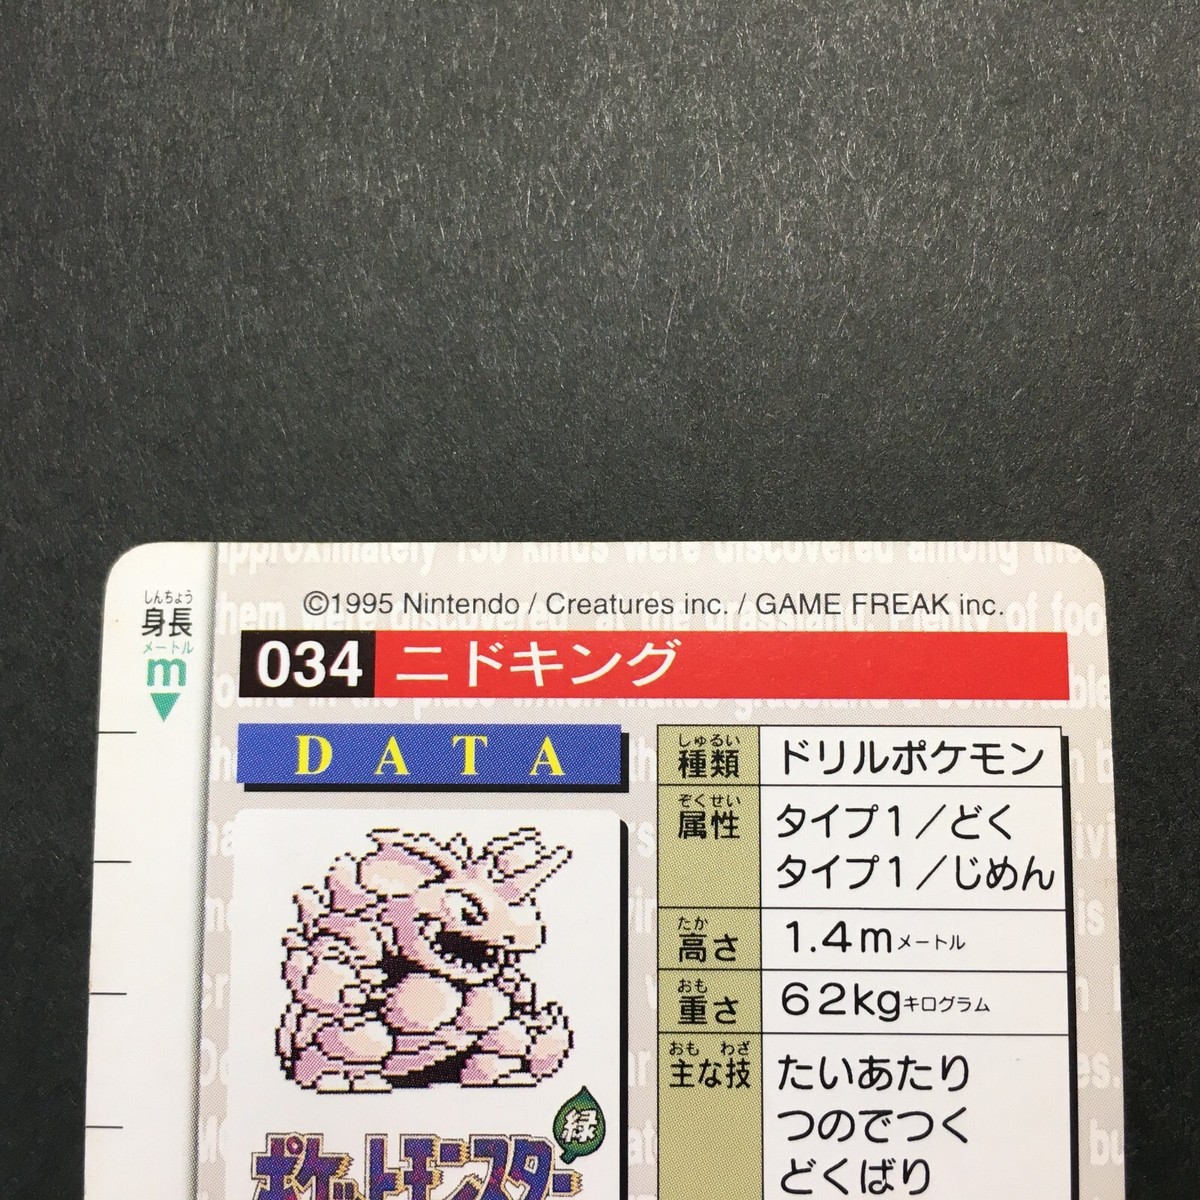 approximately 150 kinds were discovered among the
©1995 Nintendo / Creatures inc. / GAME FREAK inc.
しんちょう
身長
メートル
m
034 ニドキング
DATA
しゅるい
種類 ドリルポケモン
ぞくせい
属性 タイプ1／どく
タイプ1／じめん
たか
高さ 1.4mメートル
おも
重さ 62kgキログラム
おも わざ
主な技 たいあたり
つのでつく
どくばり
緑
ポケットモンスター